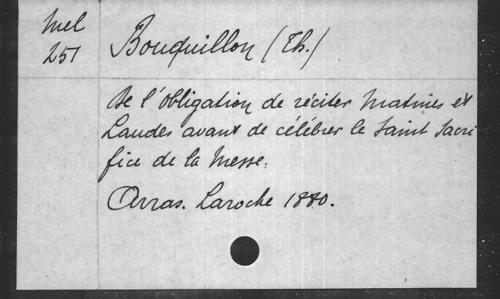 Mel
251
Bouquillon (Th.)
De l'obligation de réciter Matines et
Laudes avant de célébrer le Saint Sacri
fice de la Messe.
Arras. Laroche 1880.